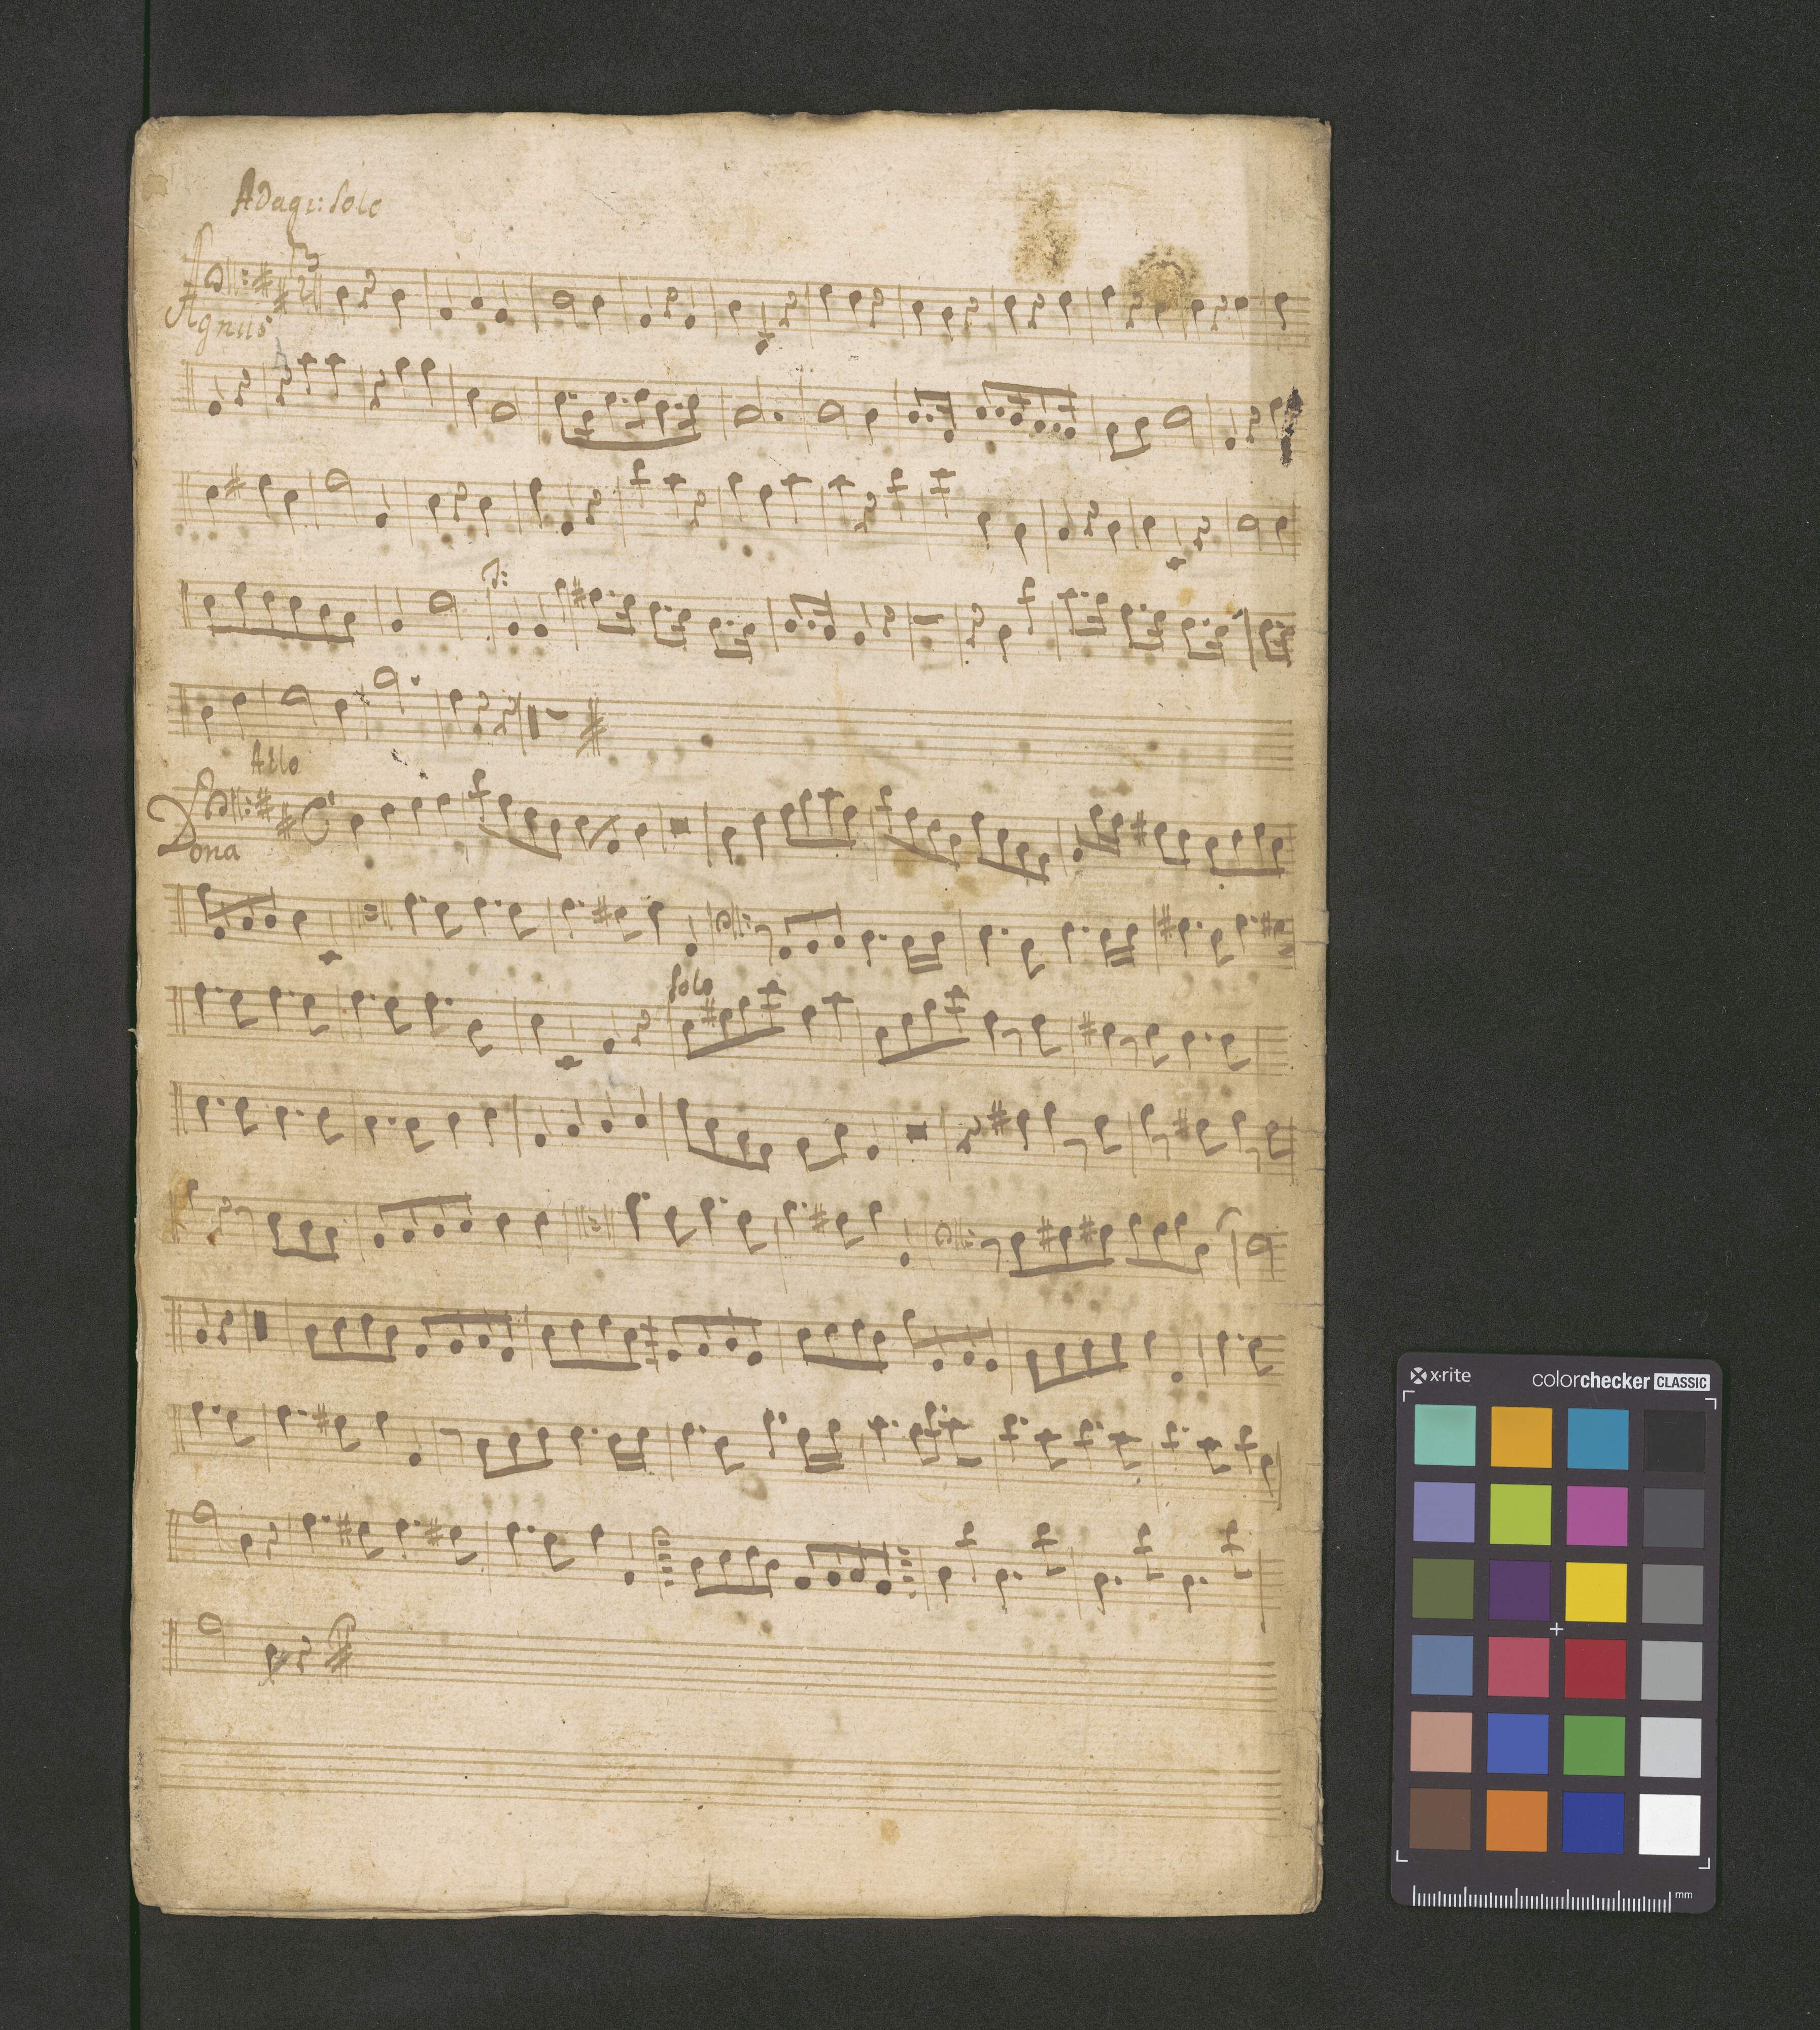 Adagi: Solo
Agnus
Allo
Dona
Solo
x-rite
colorchecker CLASSIC
mm